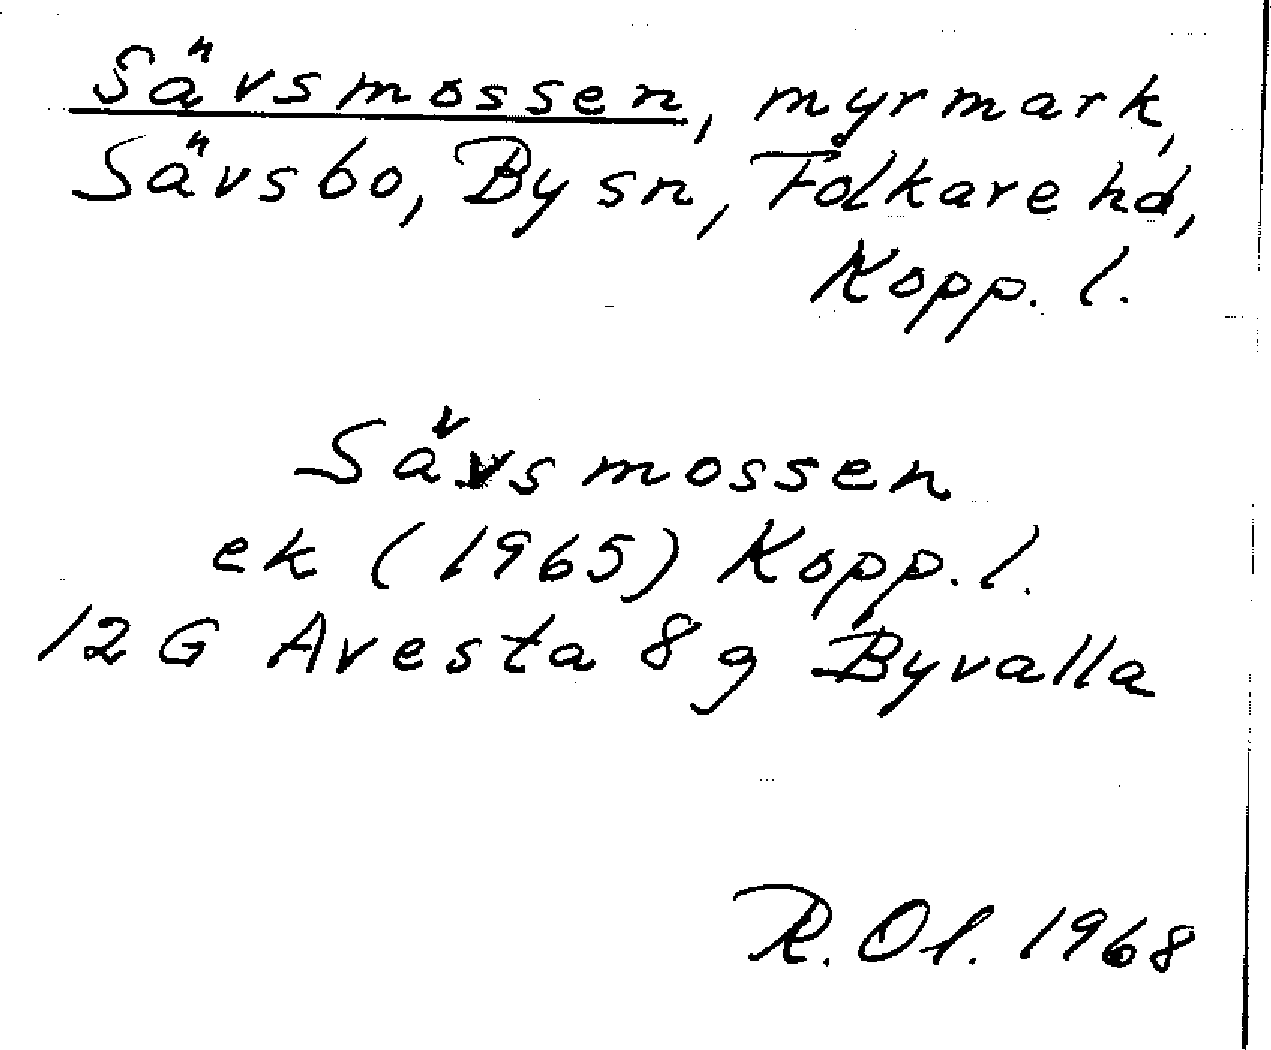 Sävsmossen, myrmark,
Sävsbo, By sn, Folkare hd,
Kopp. l.
Sävsmossen
ek (1965) Kopp. l.
12 G Avesta 8 g Byvalla
R. Ol. 1968